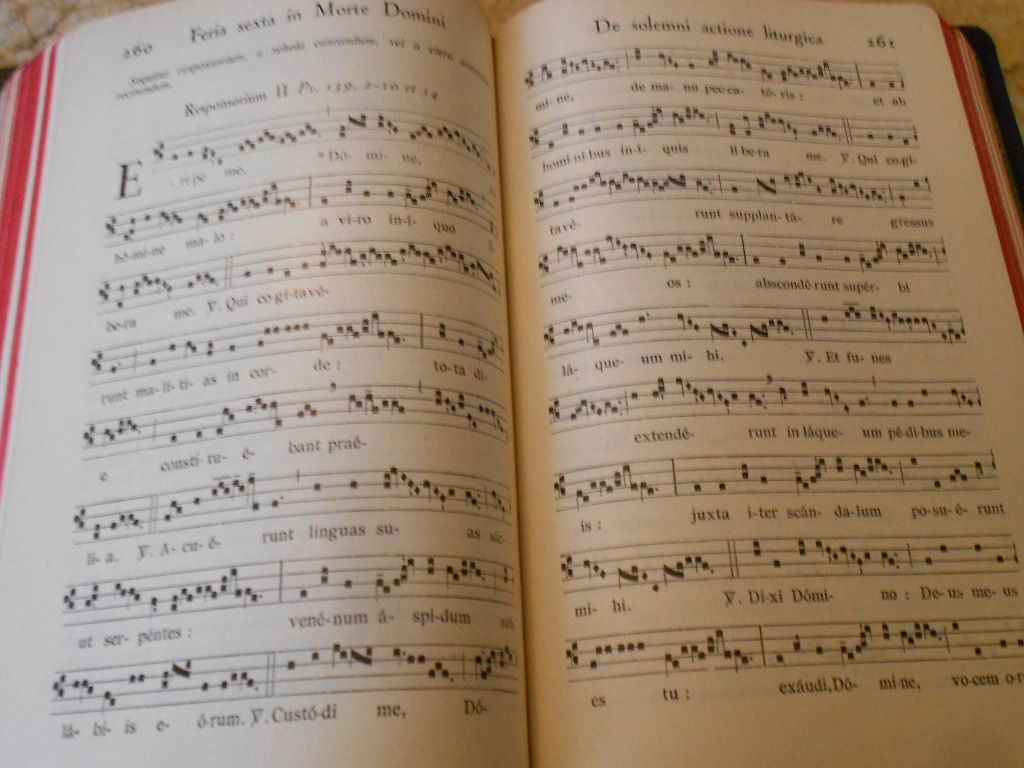 260 Feria sexta in Morte Domini
Sequitur responsorium, a schola cantandum, vel a clero
recitandum.
Responsorium II Ps. 139, 2-10 et 14
E-ri-pe me, * Dó- mi- ne,
hó-mi-ne ma-lo : a vi-ro in-í- quo
be-ra me. ℣. Qui co-gi-tavé-
runt ma-lí-ti- as in cor- de : to-ta di-
e consti-tu- é- bant praé-
li- a. ℣. A- cu-é- runt linguas su- as sic-
ut ser- péntes : vené-num á- spi-dum sub
lá- bi- is e- ó-rum. ℣. Custó-di me, Dó-
De solemni actione liturgica 261
mi-ne, de ma- nu pec-ca- tó-ris : et ab
homi-ni-bus in-í- quis lí-be-ra me. ℣. Qui co-gi-
tavé- runt supplan-tá- re gressus
me- os : abscondé-runt supér- bi
lá- que- um mi- hi. ℣. Et fu- nes
extendé- runt in láque- um pé-di-bus me-
is : juxta i-ter scán- da-lum po-su-é- runt
mi- hi. ℣. Di-xi Dómi- no : De-us me-us
es tu : exáudi, Dó- mi-ne, vo-cem o-r